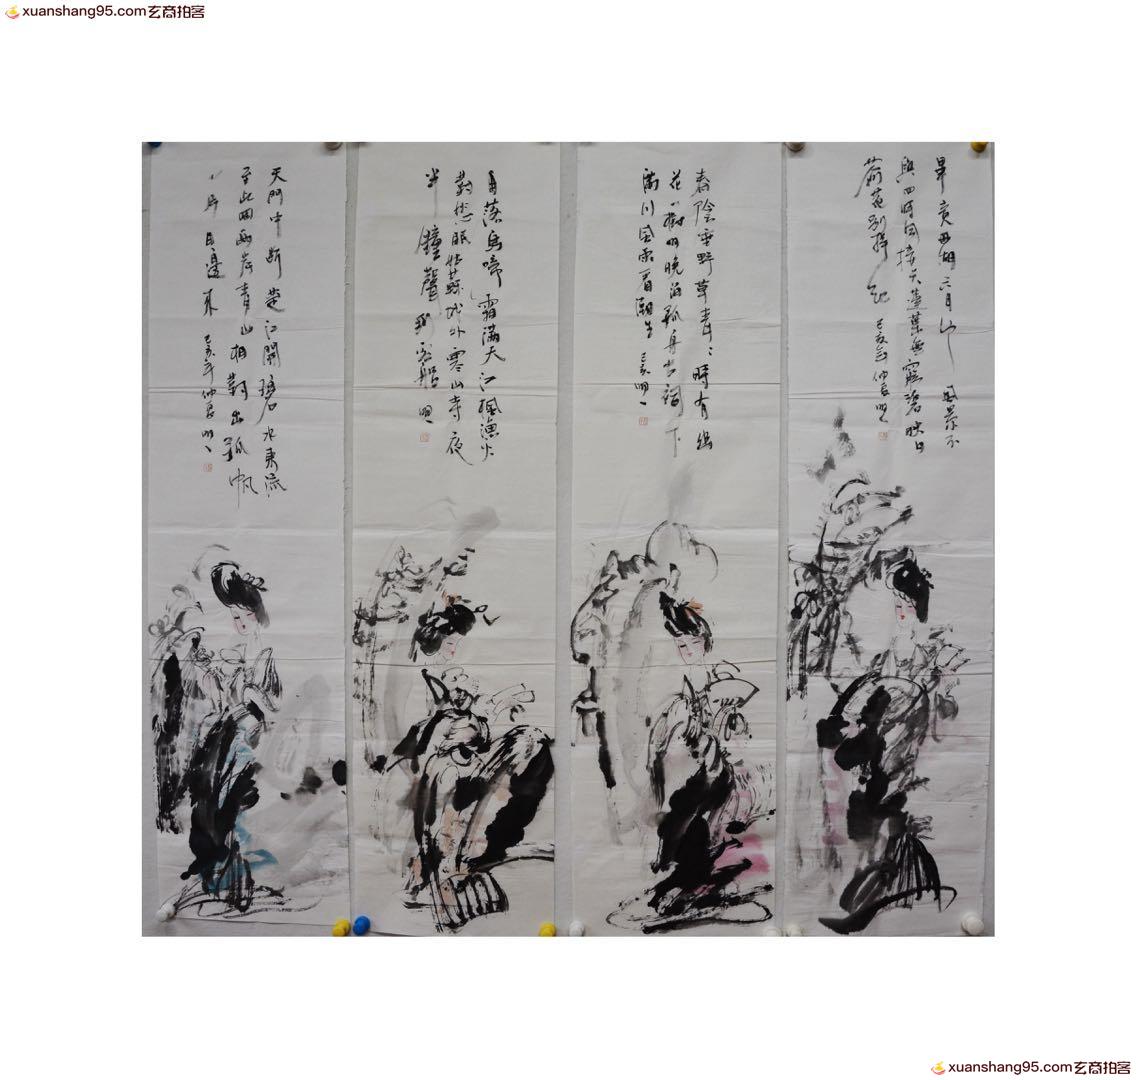 xuanshang95.com玄商拍客
畢竟西湖六月中 風景不
與四時同接天蓮葉無窮碧映日
荷花別樣紅 己亥年仲春明
春陰垂野草青々時有幽
花一樹明晚泊孤舟古祠下
滿川風雨看潮生 己亥明
月落烏啼霜滿天江楓漁火
對愁眠姑蘇城外寒山寺夜
半鐘聲到客船 明
天門中斷楚江開碧水東流
至此回兩岸青山相對出孤帆
一片日邊來 己亥年仲春明
xuanshang95.com玄商拍客